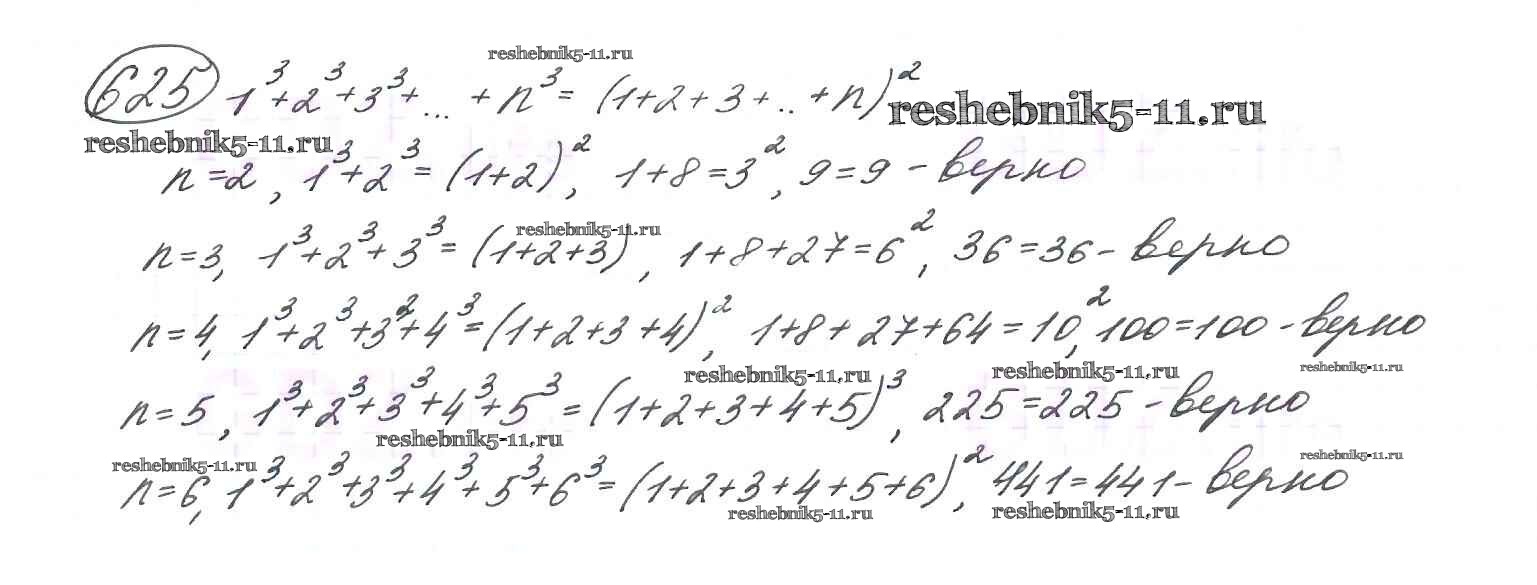 reshebnik5-11.ru
625 1³+2³+3³+...+n³=(1+2+3+..+n)² reshebnik5-11.ru
reshebnik5-11.ru
n=2, 1³+2³=(1+2)², 1+8=3², 9=9 - верно
reshebnik5-11.ru
n=3, 1³+2³+3³=(1+2+3), 1+8+27=6², 36=36 - верно
n=4, 1³+2³+3²+4³=(1+2+3+4)², 1+8+27+64=10², 100=100 - верно
reshebnik5-11.ru reshebnik5-11.ru reshebnik5-11.ru
n=5, 1³+2³+3³+4³+5³=(1+2+3+4+5)³, 225=225 - верно
reshebnik5-11.ru
reshebnik5-11.ru reshebnik5-11.ru
n=6, 1³+2³+3³+4³+5³+6³=(1+2+3+4+5+6)², 441=441 - верно
reshebnik5-11.ru reshebnik5-11.ru